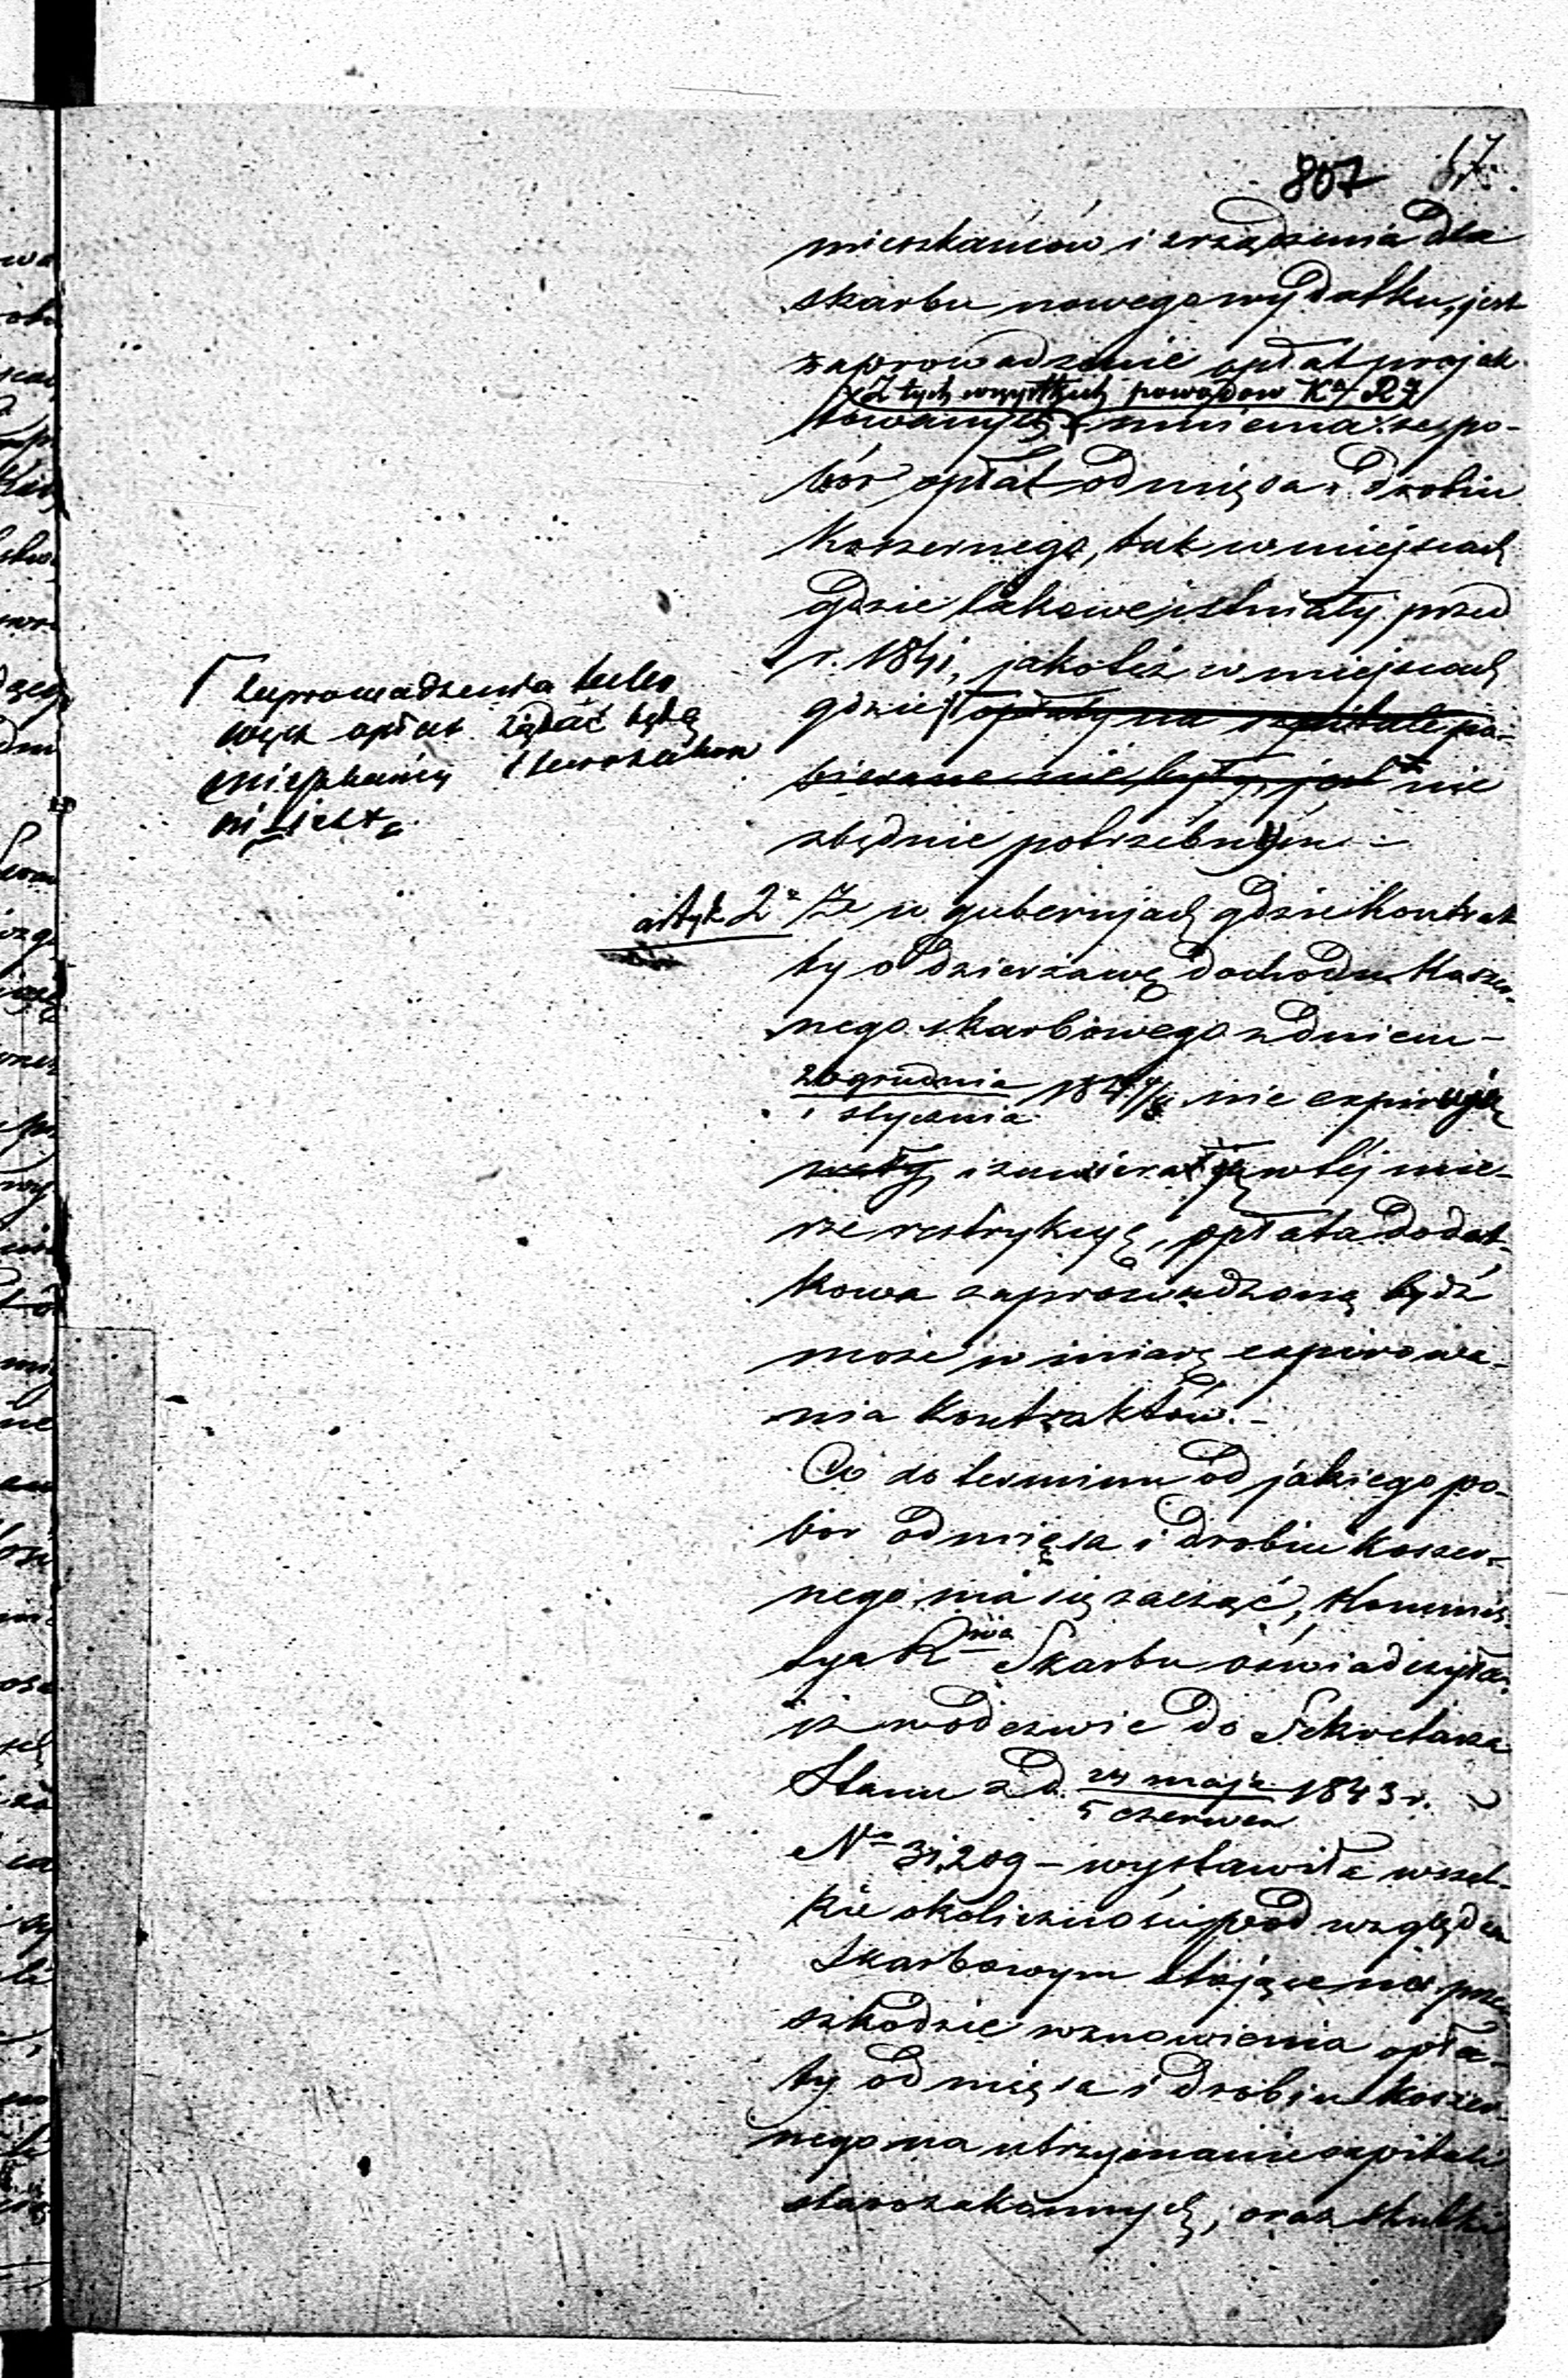 807 17
mieszkańców i zrządzenia dla
skarbu nowego wydatku, jest
zaprowadzenie opłat projek
Z tych wszystkich powodów K. R.
towanych mniema: że po-
bór opłat od mięsa i drobiu
koszernego, tak w miejscach
gdzie takowe istniały przed
r. 1841, jakoteż w miejscach
gdzie opłaty na szpitale po-
bierane nie były, jest nie
zbędnie potrzebnym.-
zaprowadzenia tako
wych opłat żądać będą
mieszkańcy starozakon
ni, jest
artyk 2° Że w gubernjach gdzie kontrak
ty o dzierżawę dochodu kosze-
nego skarbowego z dniem
20 grudnia
1 stycznia 184 nie expirują
i zawierają w tej mie-
rze restrykcyę, opłata dodat-
kowa zaprowadzoną bydź
może w miarę expirowa-
nia kontraktów.-
Co do terminu od jakiego po-
bór od mięsa i drobiu koszer-
nego ma się zacząć, Kommis-
sya Rwa Skarbu oświadczyła,
iż w odezwie do Sekretarza
Stanu z d. 24 maja
5 czerwca 1843 r.
No 31,209 – wystawiła wszel-
kie okoliczności pod względem
Skarbowym stojące na prze
szkodzie wznowienia opła-
ty od mięsa i drobiu koszer-
nego na utrzymanie szpitali
starozakonnych, oraz skutki